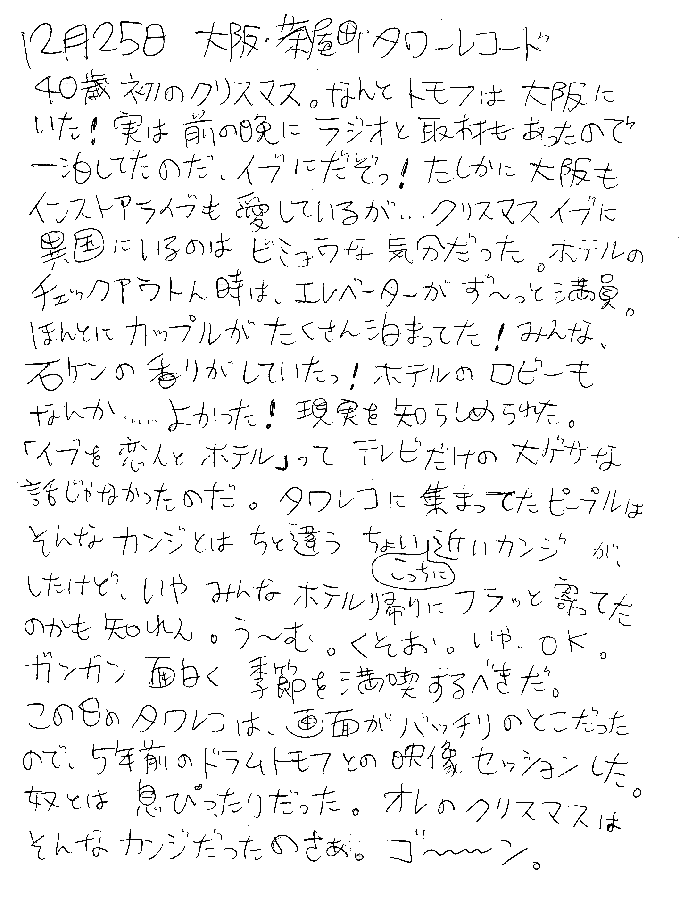 12月25日 大阪・茶屋町タワーレコード
40歳初のクリスマス。なんとトモフは大阪に
いた！実は前の晩にラジオと取材もあったので
一泊してたのだ、イブにだぞっ！たしかに大阪も
インストアライブも愛しているが…クリスマスイブに
異国にいるのはビミョウな気分だった。ホテルの
チェックアウトん時は、エレベーターがず〜っと満員。
ほんとにカップルがたくさん泊まってた！みんな、
石ケンの香りがしていたっ！ホテルのロビーも
なんか……よかった！現実を知らしめられた。
「イブを恋人とホテル」ってテレビだけの大ゲサな
話じゃなかったのだ。タワレコに集まってたピープルは
そんなカンジとはちと違うちょい近いカンジが、
こっちに
したけど、いやみんなホテル帰りにフラッと寄ってた
のかも知れん。う〜む。くそお。いや、OK。
ガンガン面白く季節を満喫するべきだ。
この日のタワレコは、画面がバッチリのとこだった
ので、5年前のドラムトモフとの映像セッションした。
奴とは息ぴったりだった。オレのクリスマスは
そんなカンジだったのさぁ。ゴ〜〜〜ン。